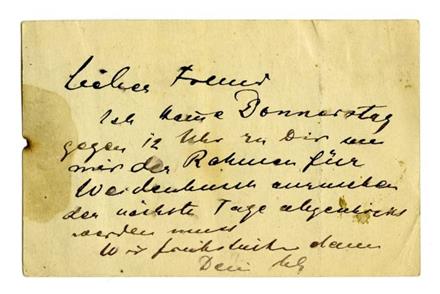 Lieber Freund
Ich komme Donnerstag
gegen 12 Uhr zu Dir um
mir den Rahmen für
anzusehen
der nächste Tage abgeschickt
werden muss
Wir frühstücken dann
Dein